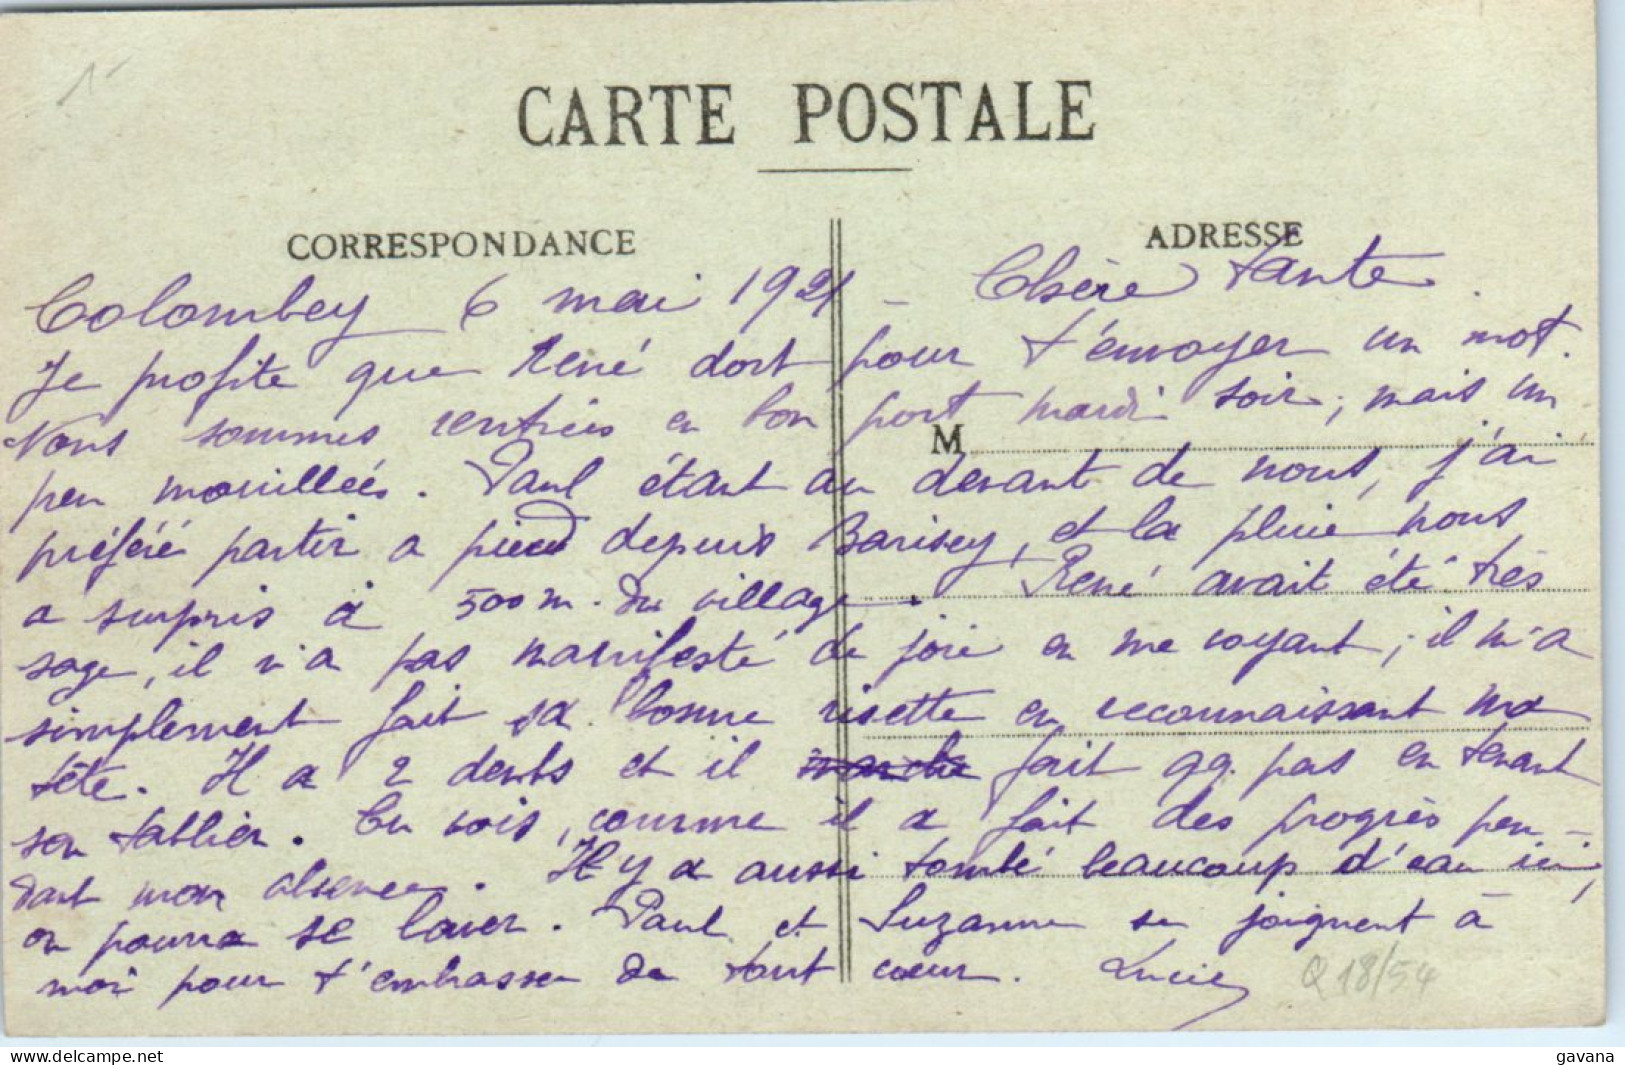 CARTE POSTALE
CORRESPONDANCE
ADRESSE
Colombey 6 mai 1921 - Chère tante
Je profite que René dort pour t'envoyer un mot.
Nous sommes rentrées en bon port mardi soir ; mais un
M
peu mouillées. Paul étant au devant de nous, j'ai
préféré partir a pied depuis Barisey, et la pluie nous
a surpris à 500 m. du village. René avait été très
sage, il n'a pas manifesté de joie en me voyant ; il m'a
simplement fait sa bonne risette en reconnaissant ma
tête. Il a 2 dents et il marche fait qq. pas en tenant
son tablier. Tu vois, comme il a fait des progrès pen-
dant mon absence. Il y a aussi tombé beaucoup d'eau ici,
on pourra se laver. Paul et Suzanne se joignent à
moi pour t'embrasser de tout coeur. Lucie
Q 18/54
www.delcampe.net
gavana